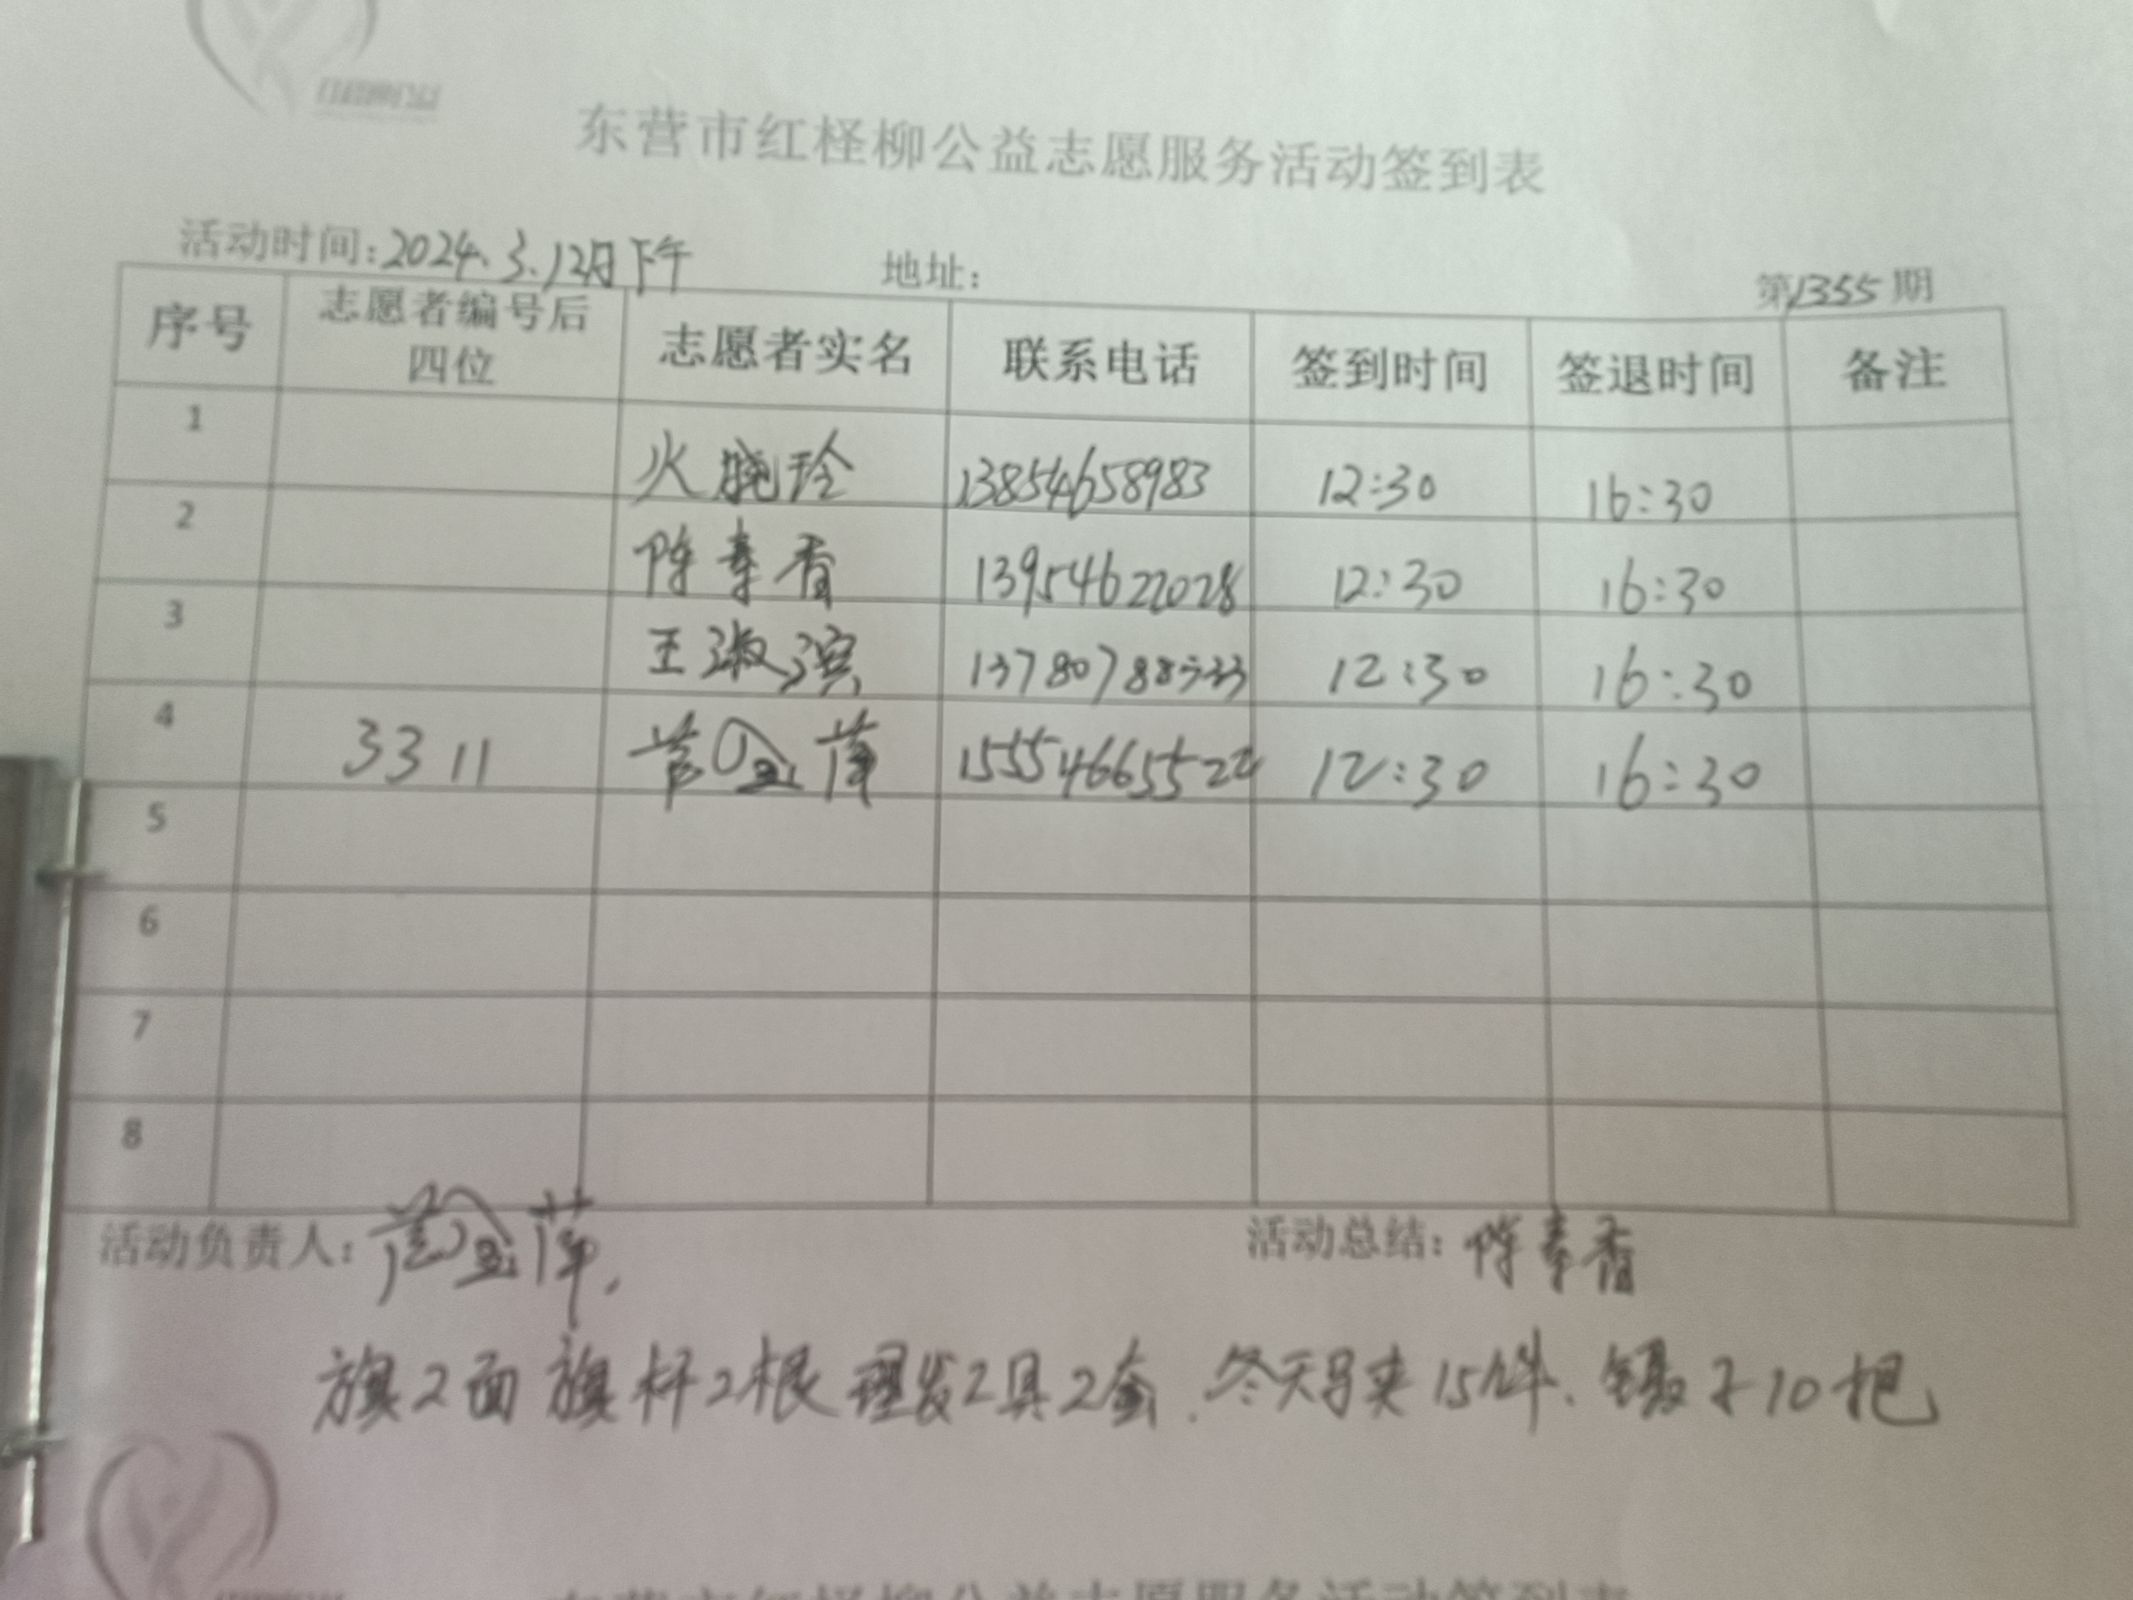 东营市红柽柳公益志愿服务活动签到表
活动时间:2024.3.12日下午 地址: 第1355期
序号 志愿者编号后四位 志愿者实名 联系电话 签到时间 签退时间 备注
1 火晓玲 13854658983 12:30 16:30
2 陈素香 13954622028 12:30 16:30
3 王淑滨 13780788533 12:30 16:30
4 3311 15554665522 12:30 16:30
5
6
7
8
活动负责人: 活动总结: 陈素香
旗2面 旗杆2根 理发工具2套. 冬天马夹15件. 镊子10把
东营市红柽柳公益志愿服务活动签到表